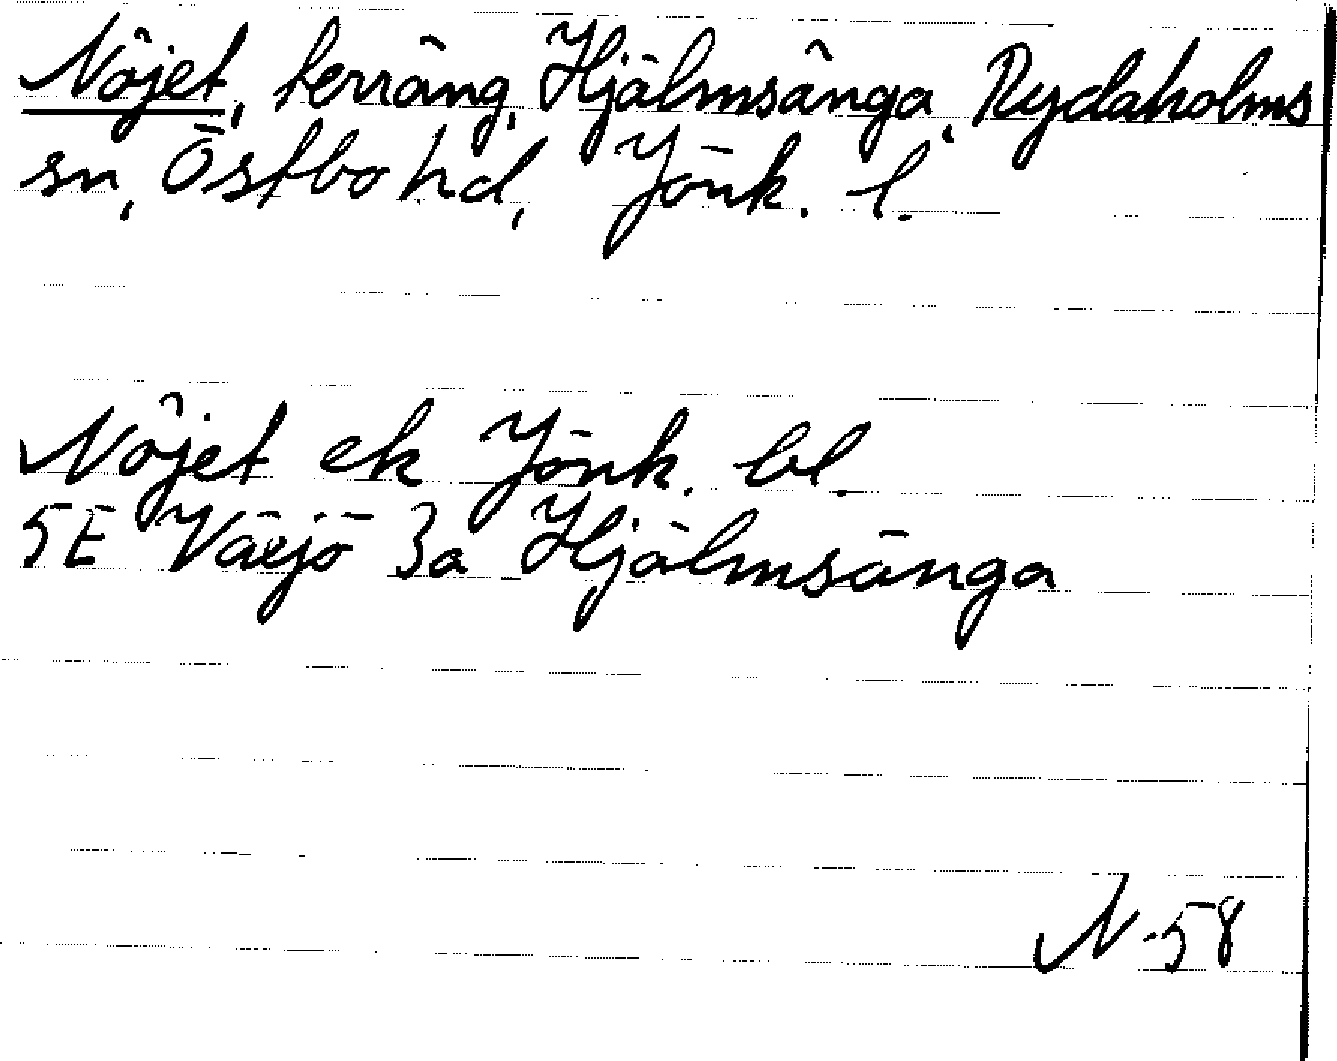 Nöjet, terräng, Hjälmsänga, Rydaholms
sn, Östbo hd, Jönk. l.
Nöjet ek Jönk. bl.
5E Växjö 3a Hjälmsänga
N-58